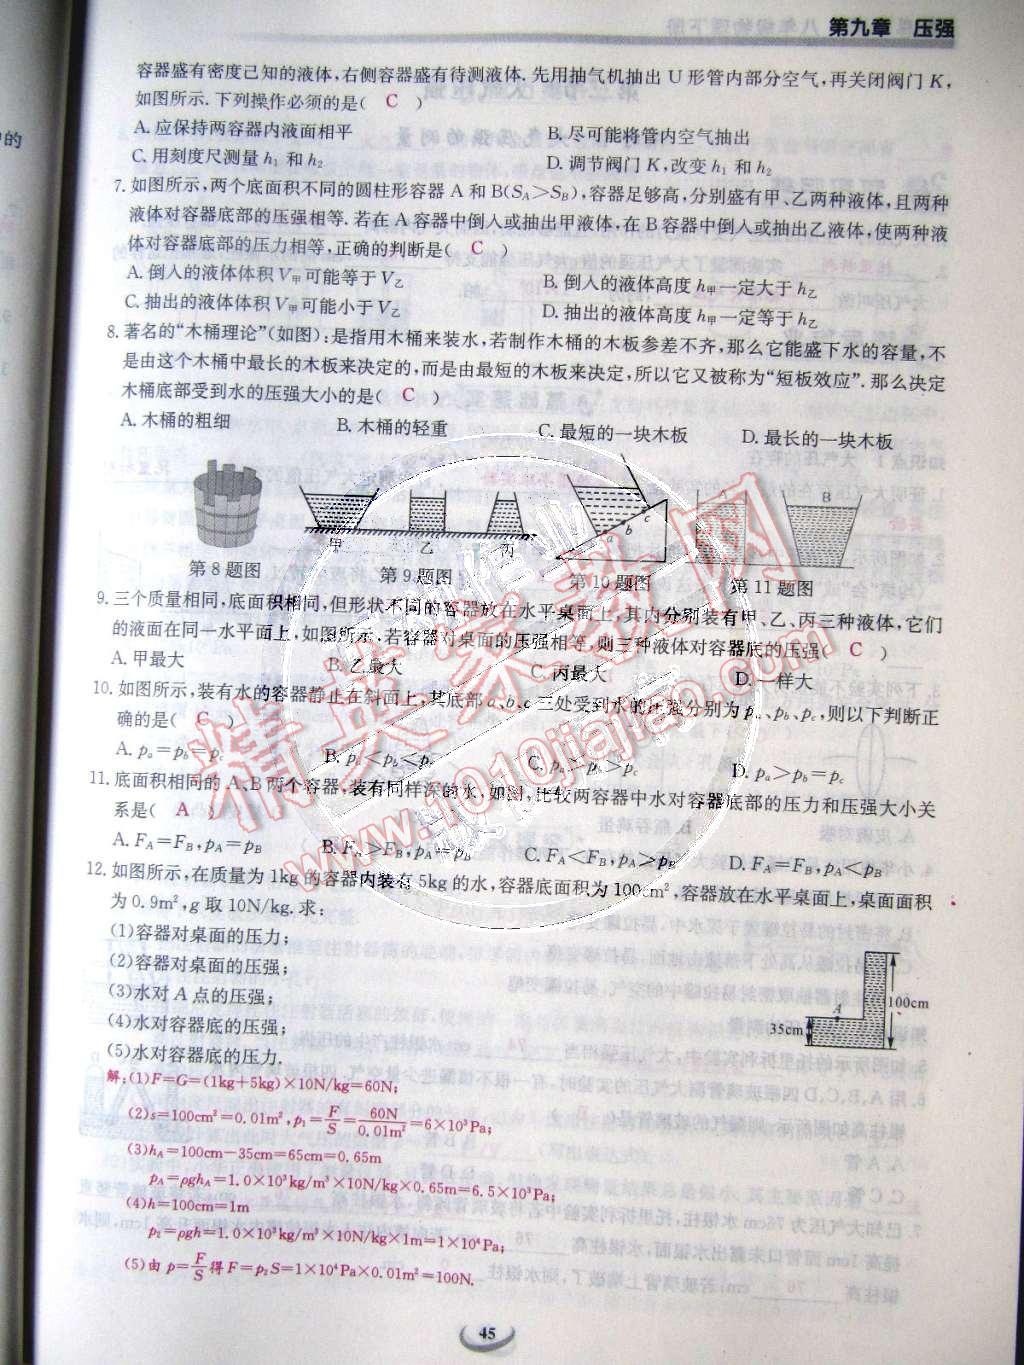 第九章 压强
容器盛有密度已知的液体,右侧容器盛有待测液体.先用抽气机抽出 U 形管内部分空气,再关闭阀门 K,
如图所示.下列操作必须的是( C )
A. 应保持两容器内液面相平 B. 尽可能将管内空气抽出
C. 用刻度尺测量 h₁ 和 h₂ D. 调节阀门 K,改变 h₁ 和 h₂
7. 如图所示,两个底面积不同的圆柱形容器 A 和 B(S_A>S_B),容器足够高,分别盛有甲、乙两种液体,且两种
液体对容器底部的压强相等.若在 A 容器中倒入或抽出甲液体,在 B 容器中倒入或抽出乙液体,使两种液
体对容器底部的压力相等,正确的判断是( C )
A. 倒人的液体体积 V甲 可能等于 V乙 B. 倒人的液体高度 h甲 一定大于 h乙
C. 抽出的液体体积 V甲 可能小于 V乙 D. 抽出的液体高度 h甲 一定等于 h乙
8. 著名的“木桶理论”(如图):是指用木桶来装水,若制作木桶的木板参差不齐,那么它能盛下水的容量,不
是由这个木桶中最长的木板来决定的,而是由最短的木板来决定,所以它又被称为“短板效应”.那么决定
木桶底部受到水的压强大小的是( C )
A. 木桶的粗细 B. 木桶的轻重 C. 最短的一块木板 D. 最长的一块木板
甲 乙 丙
a b c
A B
第8题图 第9题图 第10题图 第11题图
9. 三个质量相同,底面积相同,但形状不同的容器放在水平桌面上,其内分别装有甲、乙、丙三种液体,它们
的液面在同一水平面上,如图所示.若容器对桌面的压强相等,则三种液体对容器底的压强( C )
A. 甲最大 B. 乙最大 C. 丙最大 D. 一样大
10. 如图所示,装有水的容器静止在斜面上,其底部 a、b、c 三处受到水的压强分别为 pₐ、p_b、p_c,则以下判断正
确的是( C )
A. pₐ=p_b=p_c B. pₐ<p_b<p_c C. pₐ>p_b>p_c D. pₐ>p_b=p_c
11. 底面积相同的 A、B 两个容器,装有同样深的水,如图,比较两容器中水对容器底部的压力和压强大小关
系是( A )
A. F_A=F_B,p_A=p_B B. F_A>F_B,p_A=p_B C. F_A<F_B,p_A>p_B D. F_A=F_B,p_A<p_B
12. 如图所示,在质量为 1kg 的容器内装有 5kg 的水,容器底面积为 100cm²,容器放在水平桌面上,桌面面积
为 0.9m²,g 取 10N/kg.求:
(1)容器对桌面的压力;
(2)容器对桌面的压强;
(3)水对 A 点的压强;
(4)水对容器底的压强;
(5)水对容器底的压力.
A
35cm
100cm
解:(1)F=G=(1kg+5kg)×10N/kg=60N;
(2)s=100cm²=0.01m²,p₁=F/S=60N/0.01m²=6×10³Pa;
(3)h_A=100cm-35cm=65cm=0.65m
p_A=ρgh_A=1.0×10³kg/m³×10N/kg×0.65m=6.5×10³Pa;
(4)h=100cm=1m
p₂=ρgh=1.0×10³kg/m³×10N/kg×1m=1×10⁴Pa;
(5)由 p=F/S 得 F=p₂S=1×10⁴Pa×0.01m²=100N.
45
精英家教网
www.1010jiajiao.com